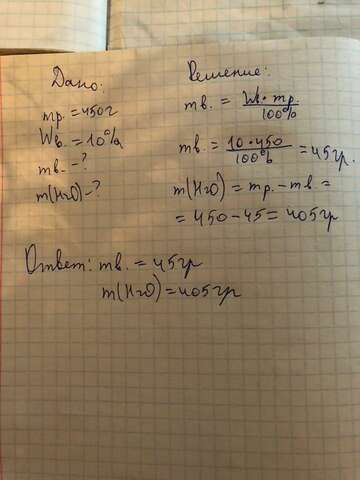 Дано:
mр. = 450г
Wв. = 10%
mв. - ?
m(H₂O) - ?
Решение:
mв. = Wв • mр. / 100%
mв. = 10 • 450 / 100% = 45гр.
m(H₂O) = mр. - mв. =
= 450 - 45 = 405гр
Ответ: mв. = 45гр
m(H₂O) = 405гр